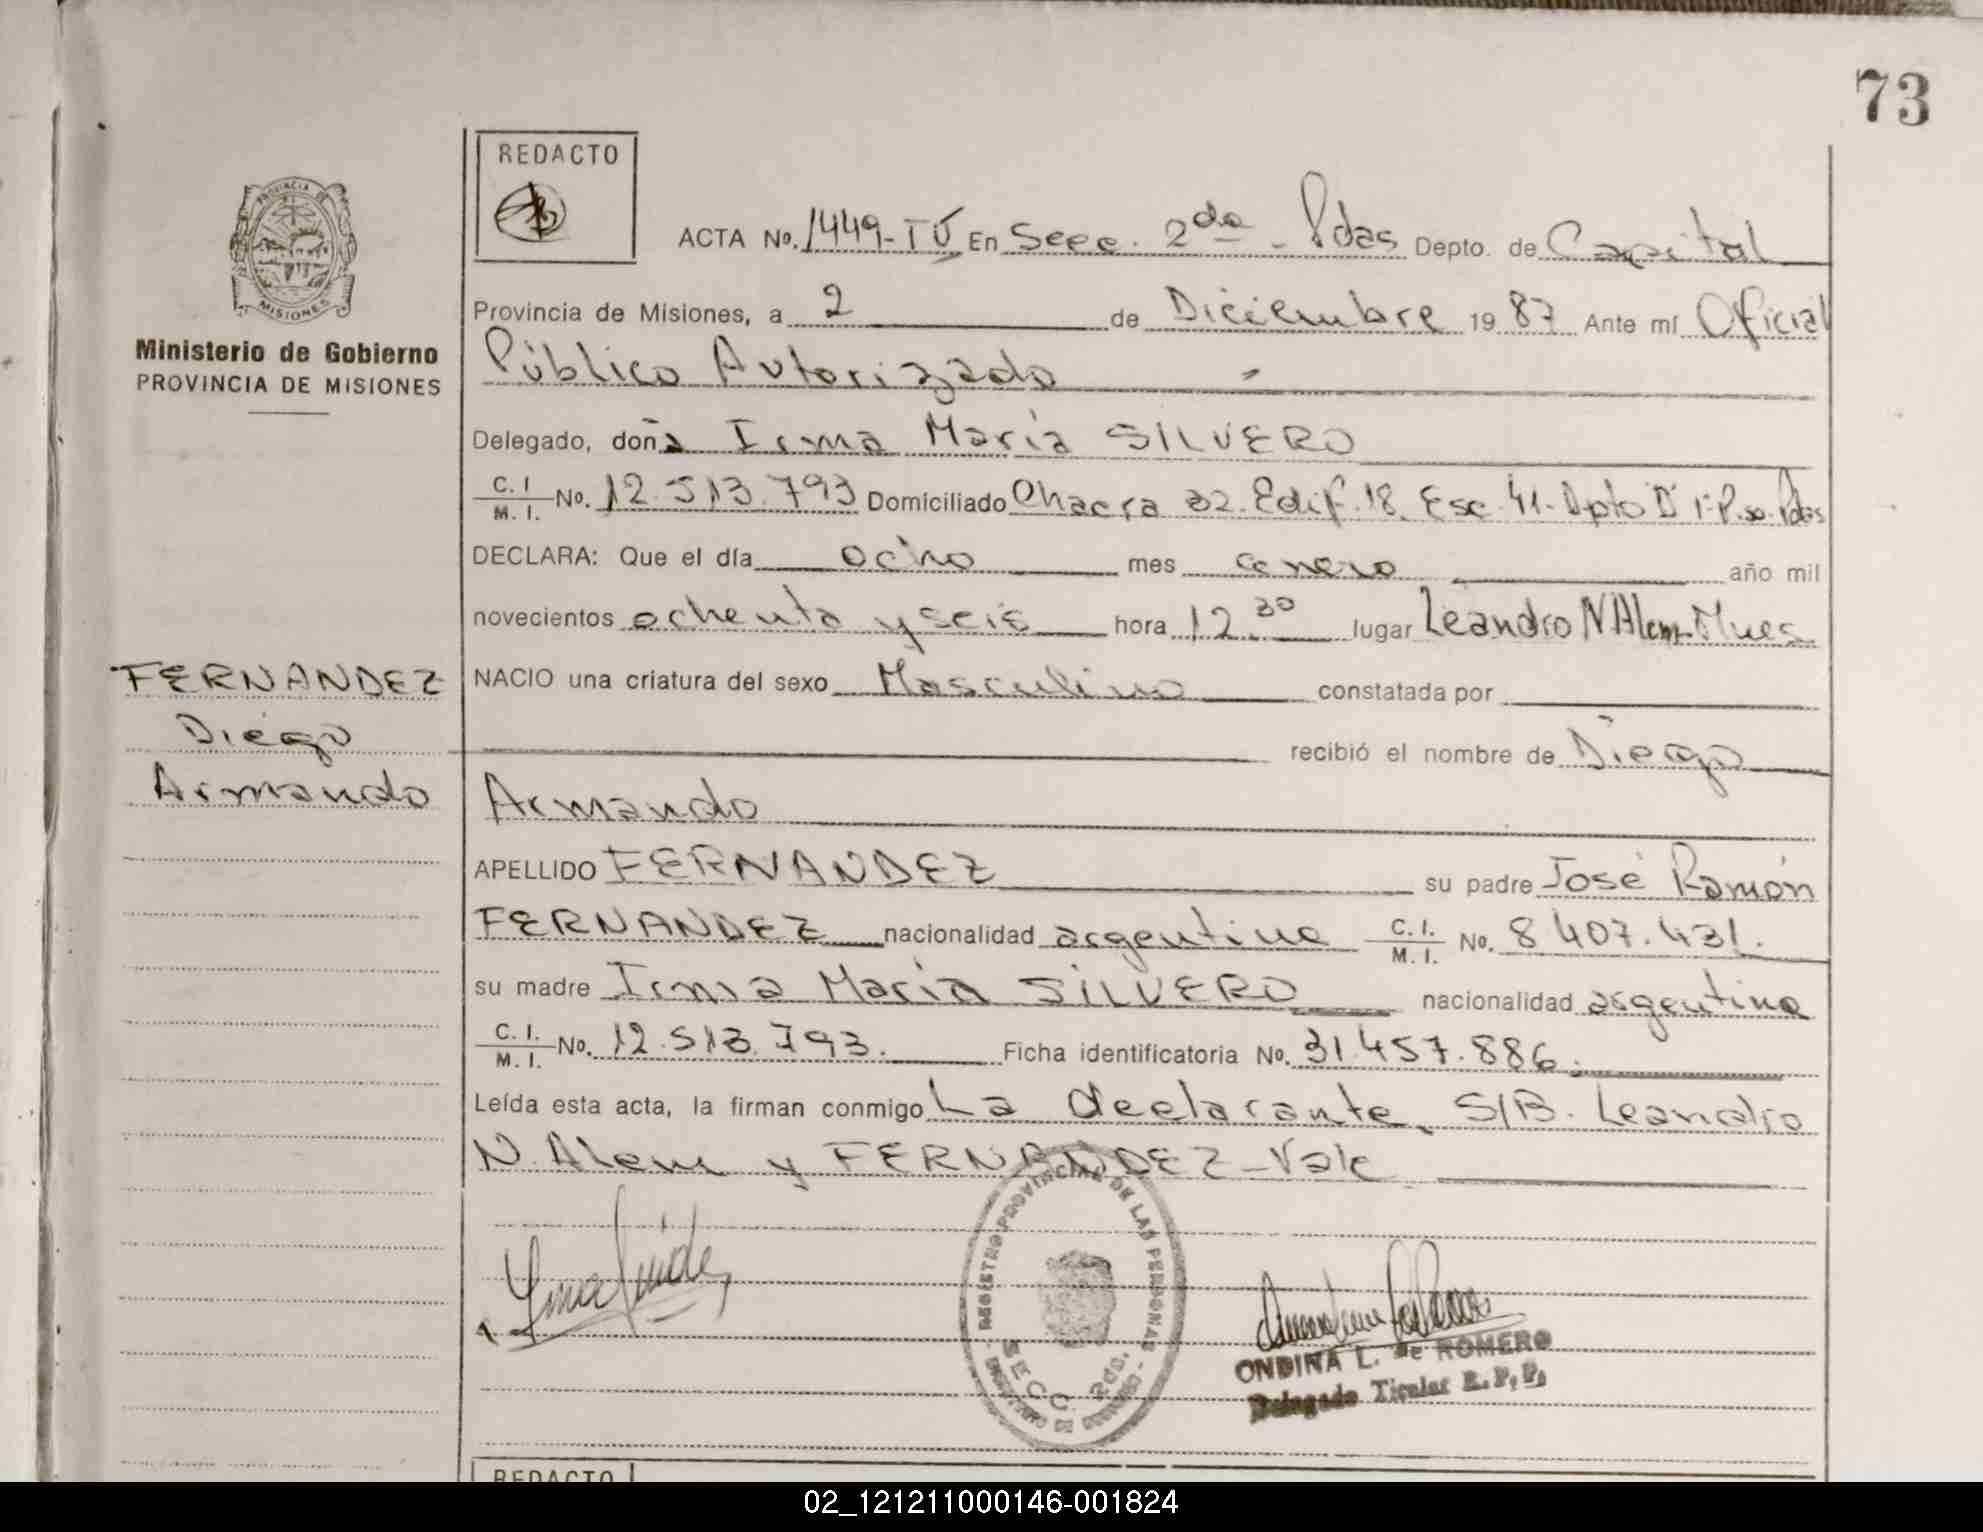 73
PROVINCIA DE
MISIONES
Ministerio de Gobierno
PROVINCIA DE MISIONES
FERNANDEZ
Diego
Armando
REDACTO
ACTA No. 1449-TU En Secc. 2da - Pdas Depto. de Capital
Provincia de Misiones, a 2 de Diciembre 1987 Ante mí Oficial
Público Autorizado
Delegado, doña Irma María SILVERO
C. I. / M. I. No. 12.513.793 Domiciliado Chacra 32. Edif. 18. Esc. 41. Dpto D 1º P.so. Pdas
DECLARA: Que el día ocho mes enero año mil
novecientos ochenta y seis hora 12.30 lugar Leandro N Alem-Mnes
NACIO una criatura del sexo Masculino constatada por
recibió el nombre de Diego
Armando
APELLIDO FERNANDEZ su padre José Ramón
FERNANDEZ nacionalidad argentina C. I. / M. I. No. 8.407.431.
su madre Irma María SILVERO nacionalidad argentina
C. I. / M. I. No. 12.513.793. Ficha identificatoria No. 31.457.886.
Leída esta acta, la firman conmigo La declarante, S/B. Leandro
N. Alem y FERNANDEZ-Vale
REGISTRO PROVINCIAL DE LAS PERSONAS
SECC. 2da.
ONDINA L. de ROMERO
Delegado Titular R. P. P.
REDACTO
02_121211000146-001824